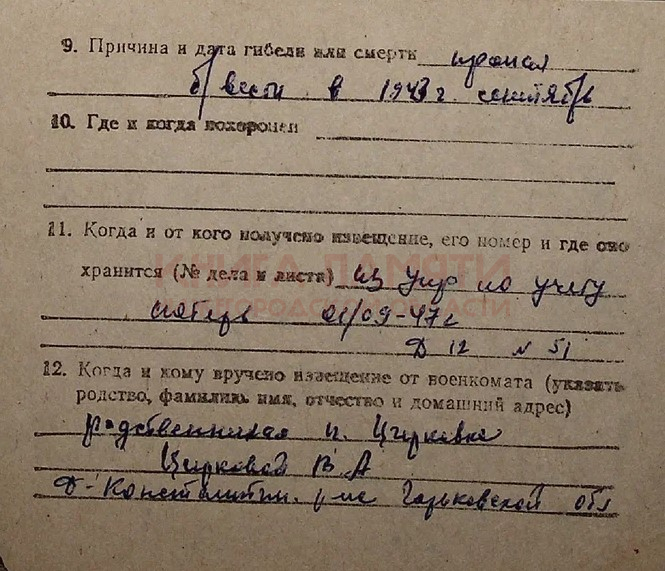 9. Причина и дата гибели или смерти пропал
б/вести в 1943 г. сентябрь
10. Где и когда похоронен
11. Когда и от кого получено извещение, его номер и где оно
хранится (№ дела и листа) из упр по учету
КНИГА ПАМЯТИ
НИЖЕГОРОДСКОЙ ОБЛАСТИ
потерь 01/09-47г
Д 12 N 51
12. Когда и кому вручено извещение от военкомата (указать
родство, фамилию, имя, отчество и домашний адрес)
родственникам
Цирковой В А
Д-Константин. р-на Горьковской обл